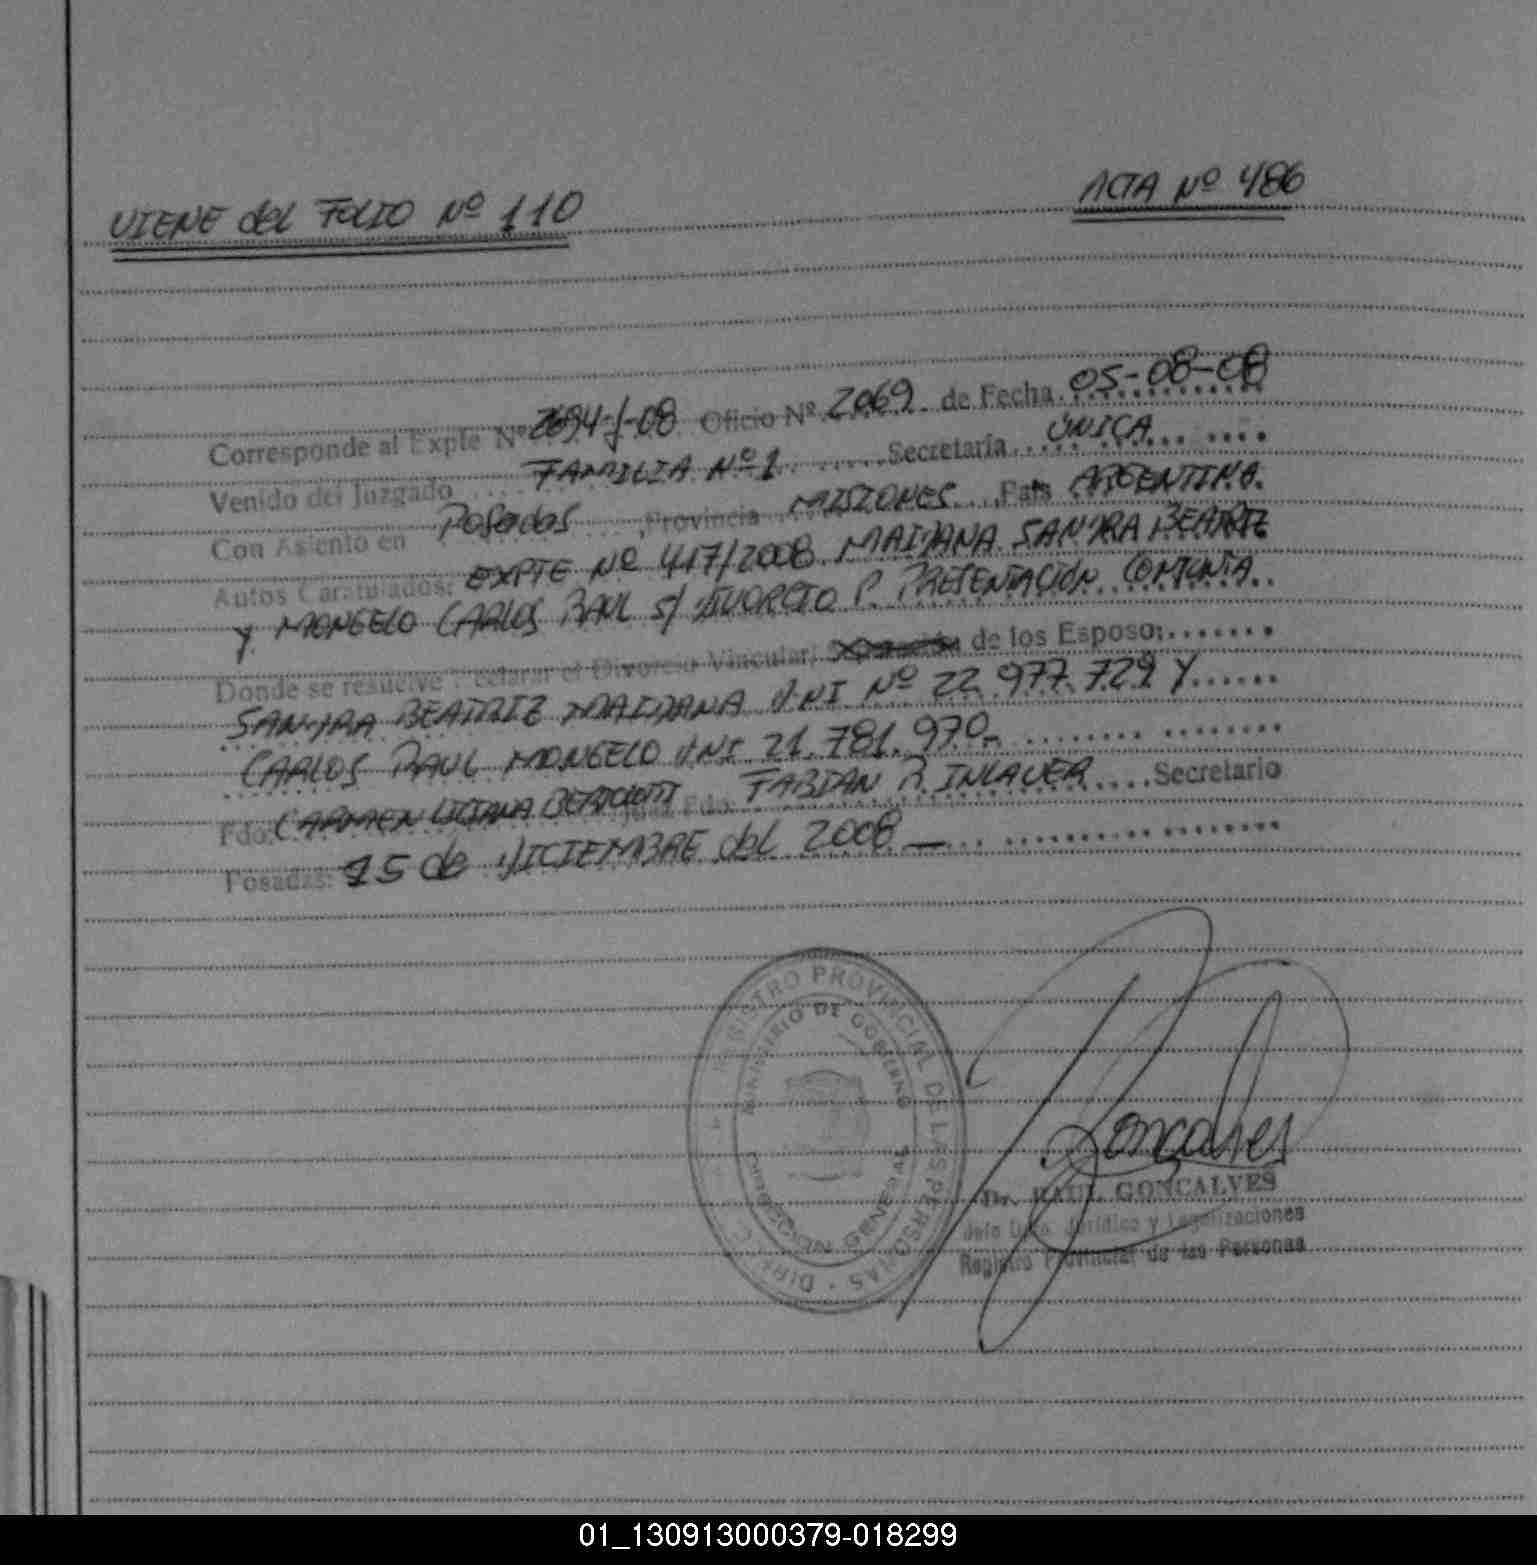 VIENE del FOLIO Nº 110
ACTA Nº 486
Corresponde al Expte Nº 2694-J-08 Oficio Nº 2069 de Fecha 05-08-08
Venido del Juzgado FAMILIA Nº 1 Secretaría ÚNICA
Con Asiento en Posadas, Provincia MISIONES, País ARGENTINA.
Autos Caratulados: EXPTE Nº 417/2008 MAIDANA SANDRA BEATRIZ
Y MONGELO CARLOS RAUL S/ DIVORCIO P. PRESENTACIÓN CONJUNTA.
Donde se resuelve Declarar el Divorcio Vincular/ de los Esposo:
SANDRA BEATRIZ MAIDANA DNI Nº 22.977.729 Y
CARLOS RAUL MONGELO DNI 21.781.970-
Fdo: CARMEN LICIANA BERTOLOTTI Juez Fdo: FABIAN R. INLAUER Secretario
Posadas: 15 de DICIEMBRE del 2008
DIREC REGISTRO PROVINCIAL DE LAS PERSONAS
MINISTERIO DE GOBIERNO
Goncalves
Dr. RAUL GONCALVES
Jefe Dpto. Jurídico y Legalizaciones
Registro Provincial de las Personas
01_130913000379-018299